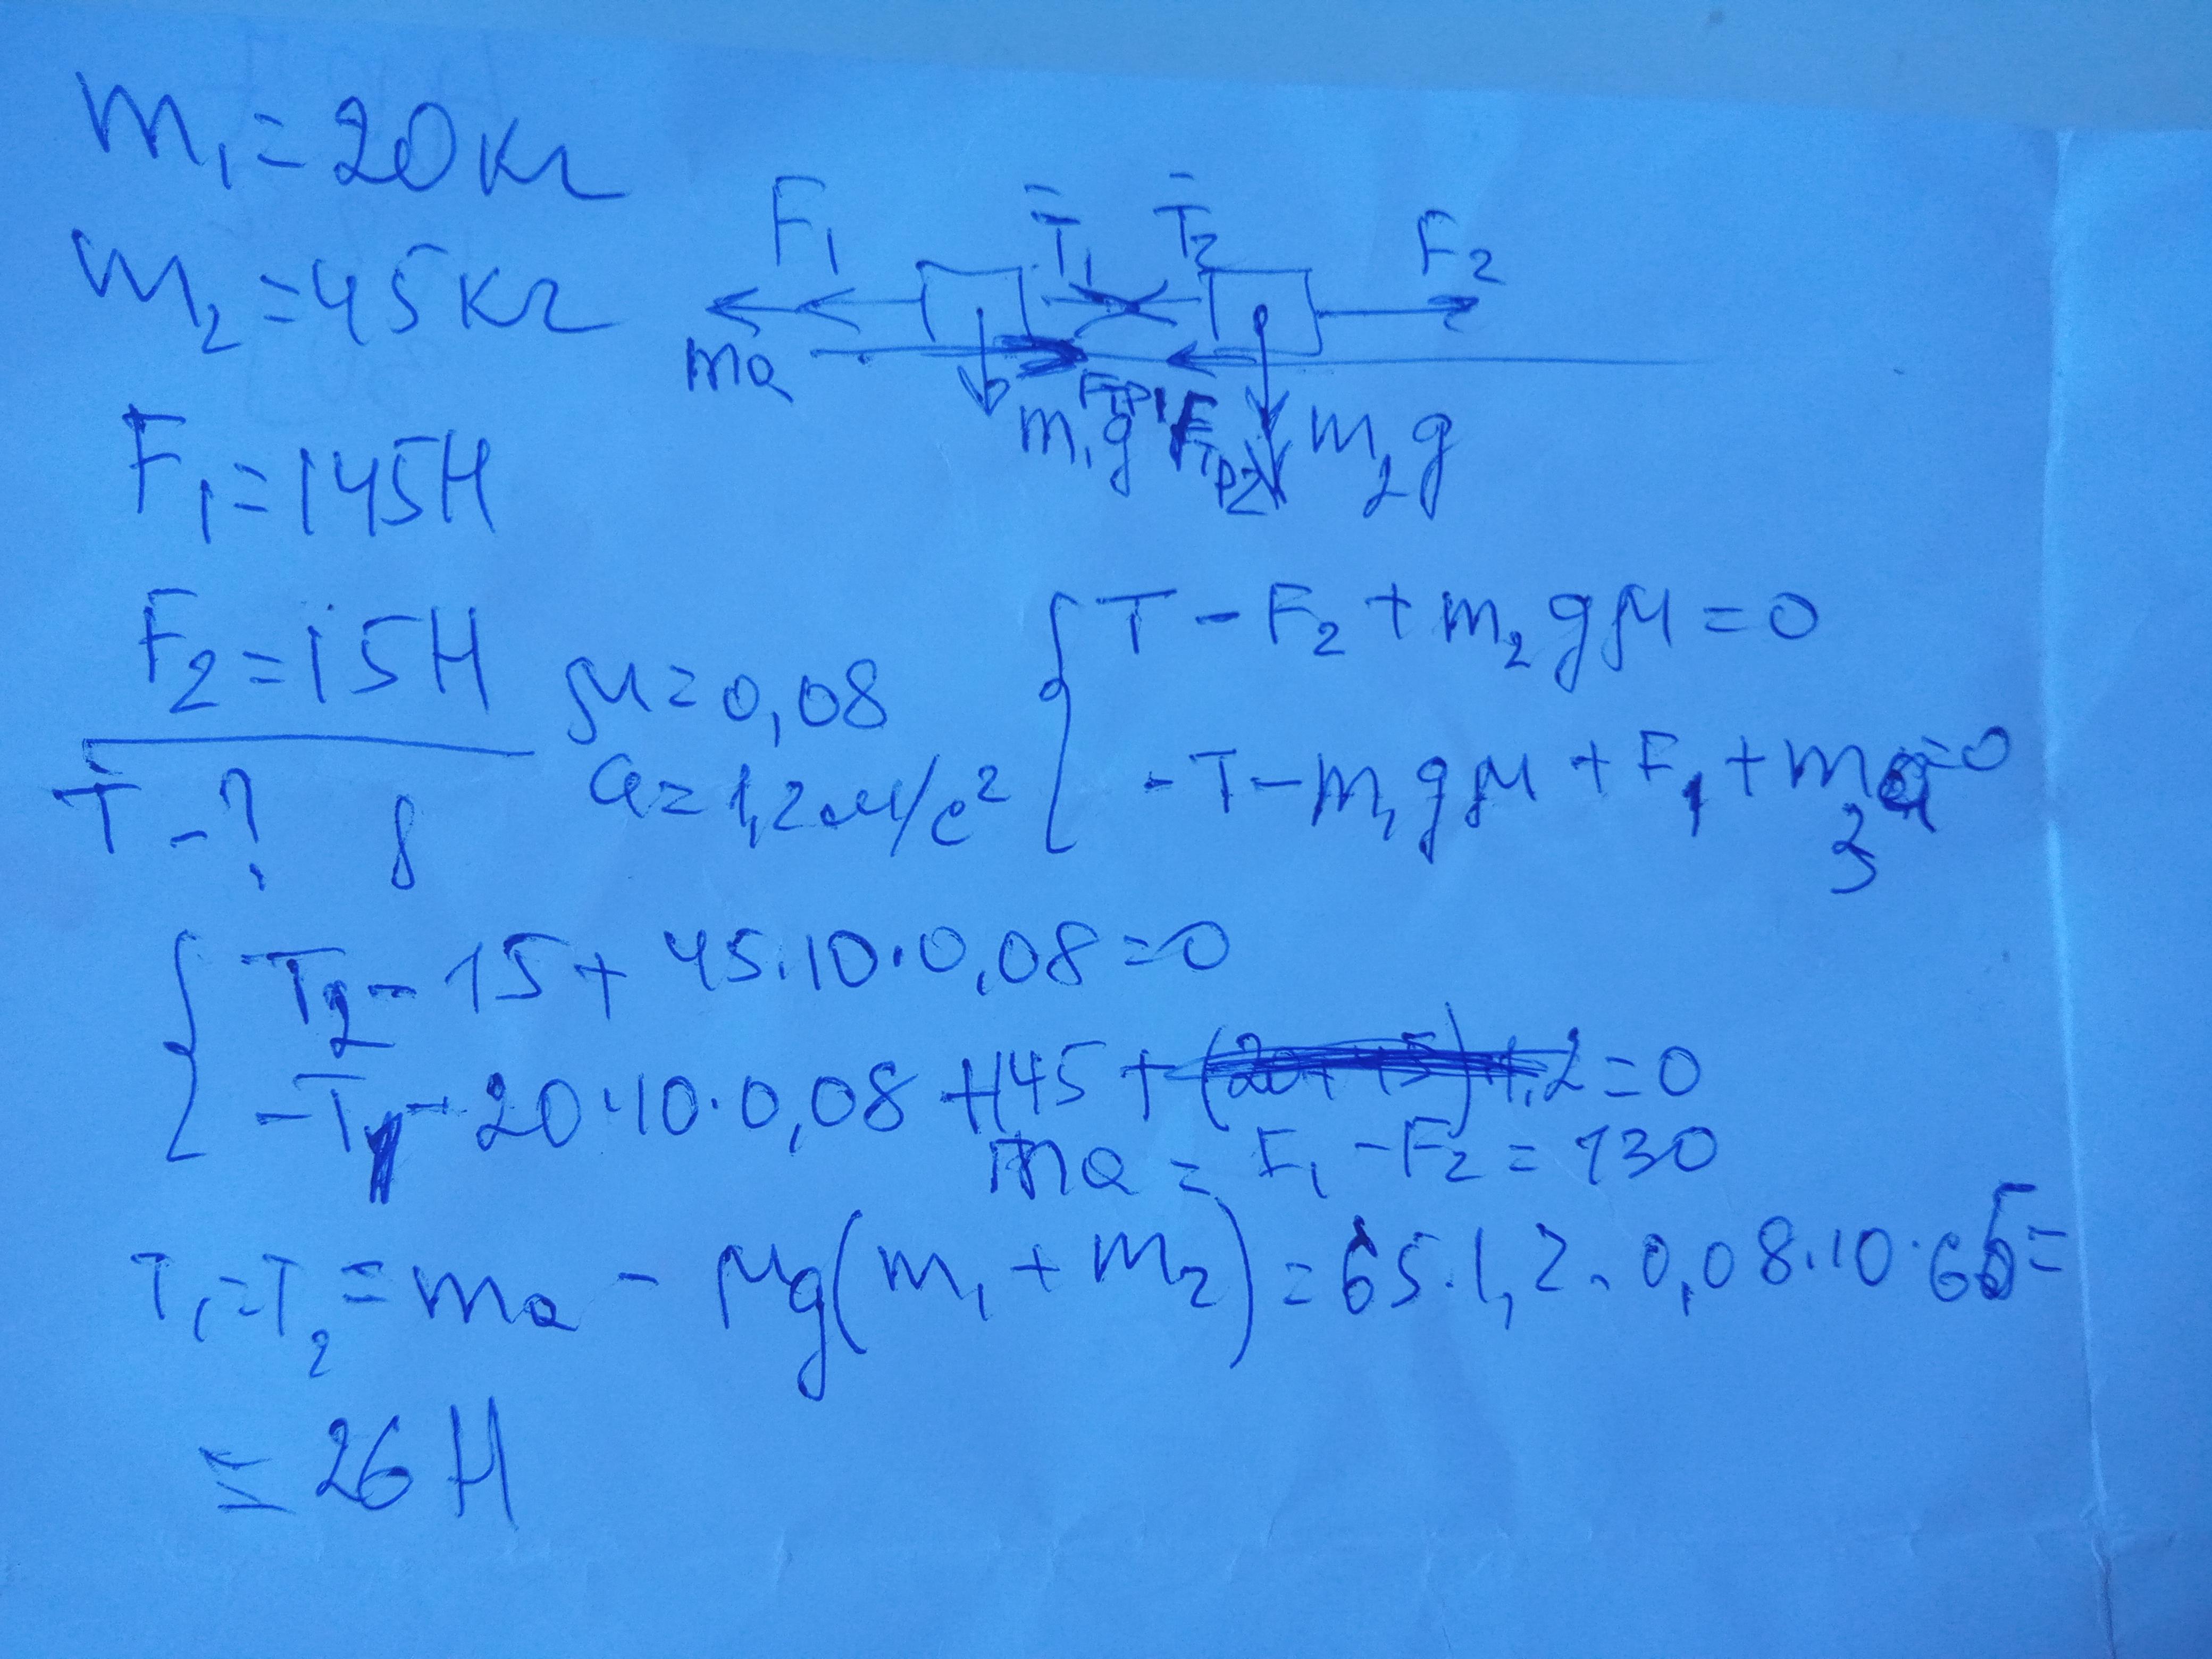 m₁ = 20 кг
m₂ = 45 кг
F₁ = 145 Н
F₂ = 15 Н
T - ?
μ = 0,08
a = 1,2 м/с²
F₁ T₁ T₂ F₂
ma Fтр1 Fтр2
m₁g m₂g
T - F₂ + m₂gμ = 0
-T - m₁gμ + F₁ + m a = 0
T₂ - 15 + 45·10·0,08 = 0
-T₁ - 20·10·0,08 + 145 + = 0
ma = F₁ - F₂ = 130
T₁ = T₂ = ma - μg(m₁ + m₂) = 65·1,2 - 0,08·10·65 =
= 26 Н